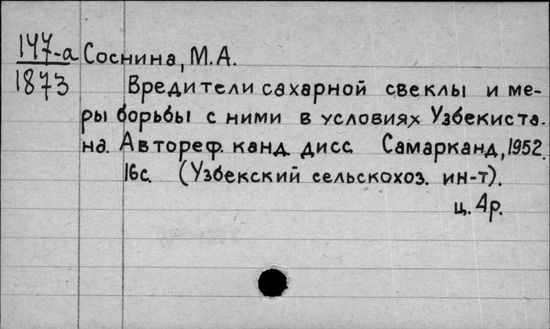 147-а Соснина, М.А.
1873
Вредители сахарной свеклы и ме-
ры борьбы с ними в условиях Узбекиста-
на. Автореф. канд. дисс. Самарканд, 1952.
16с. (Узбекский сельскохоз. ин-т).
ц. 4р.